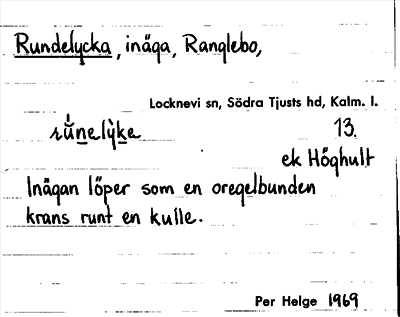 Rundelycka, inäga, Ranglebo,
Locknevi sn, Södra Tjusts hd, Kalm. l.
13.
ek Höghult
Inägan löper som en oregelbunden
krans runt en kulle.
Per Helge 1969